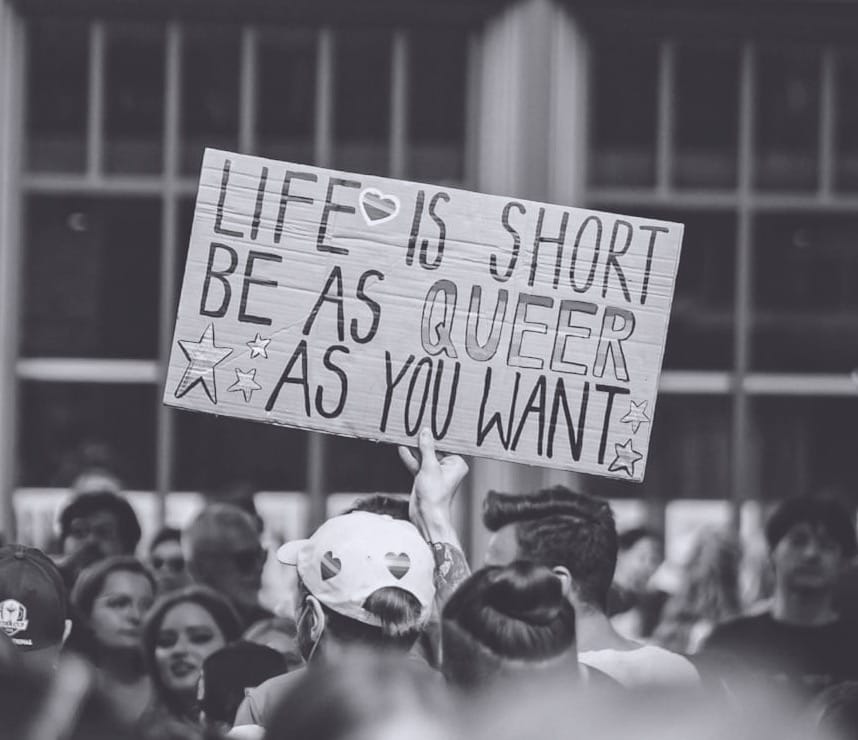 LIFE IS SHORT
BE AS QUEER
AS YOU WANT